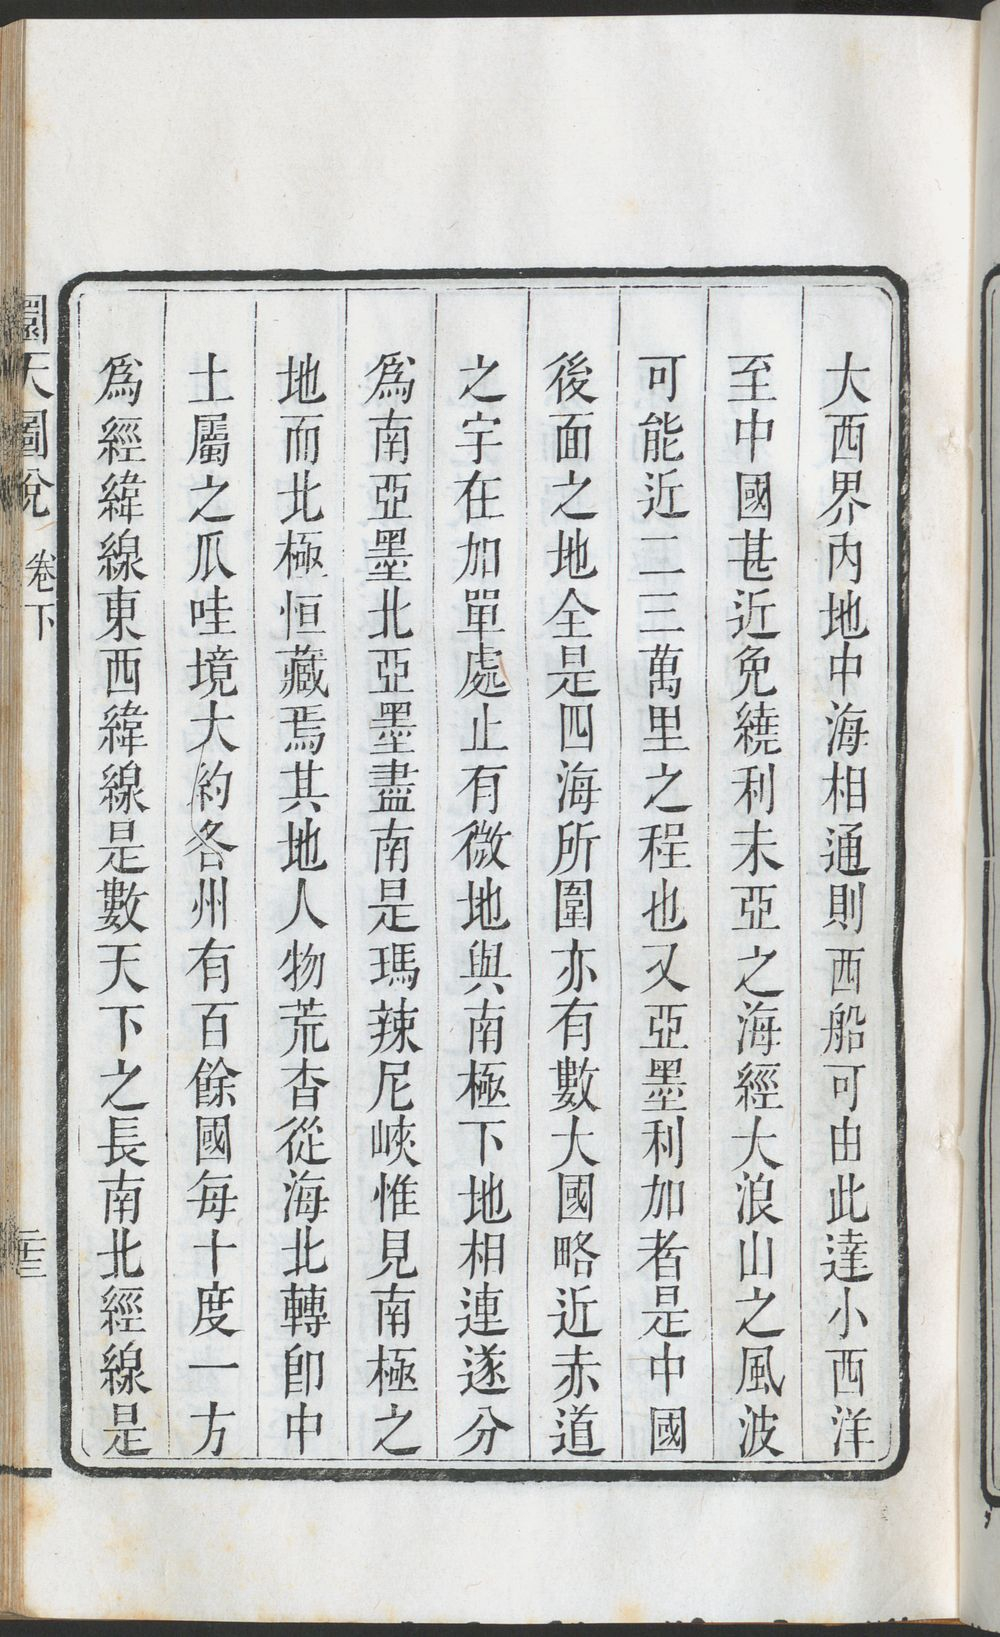 大西界內地中海相通則西船可由此達小西洋
至中國甚近免繞利未亞之海經大浪山之風波
可能近二三萬里之程也又亞墨利加者是中國
後面之地全是四海所圍亦有數大國略近赤道
之宇在加單處止有微地與南極下地相連遂分
爲南亞墨北亞墨盡南是瑪辣尼峽惟見南極之
地而北極恒藏焉其地人物荒杳從海北轉卽中
土屬之瓜哇境大約各州有百餘國每十度一方
爲經緯線東西緯線是數天下之長南北經線是
圜天圖說 卷下 二十三